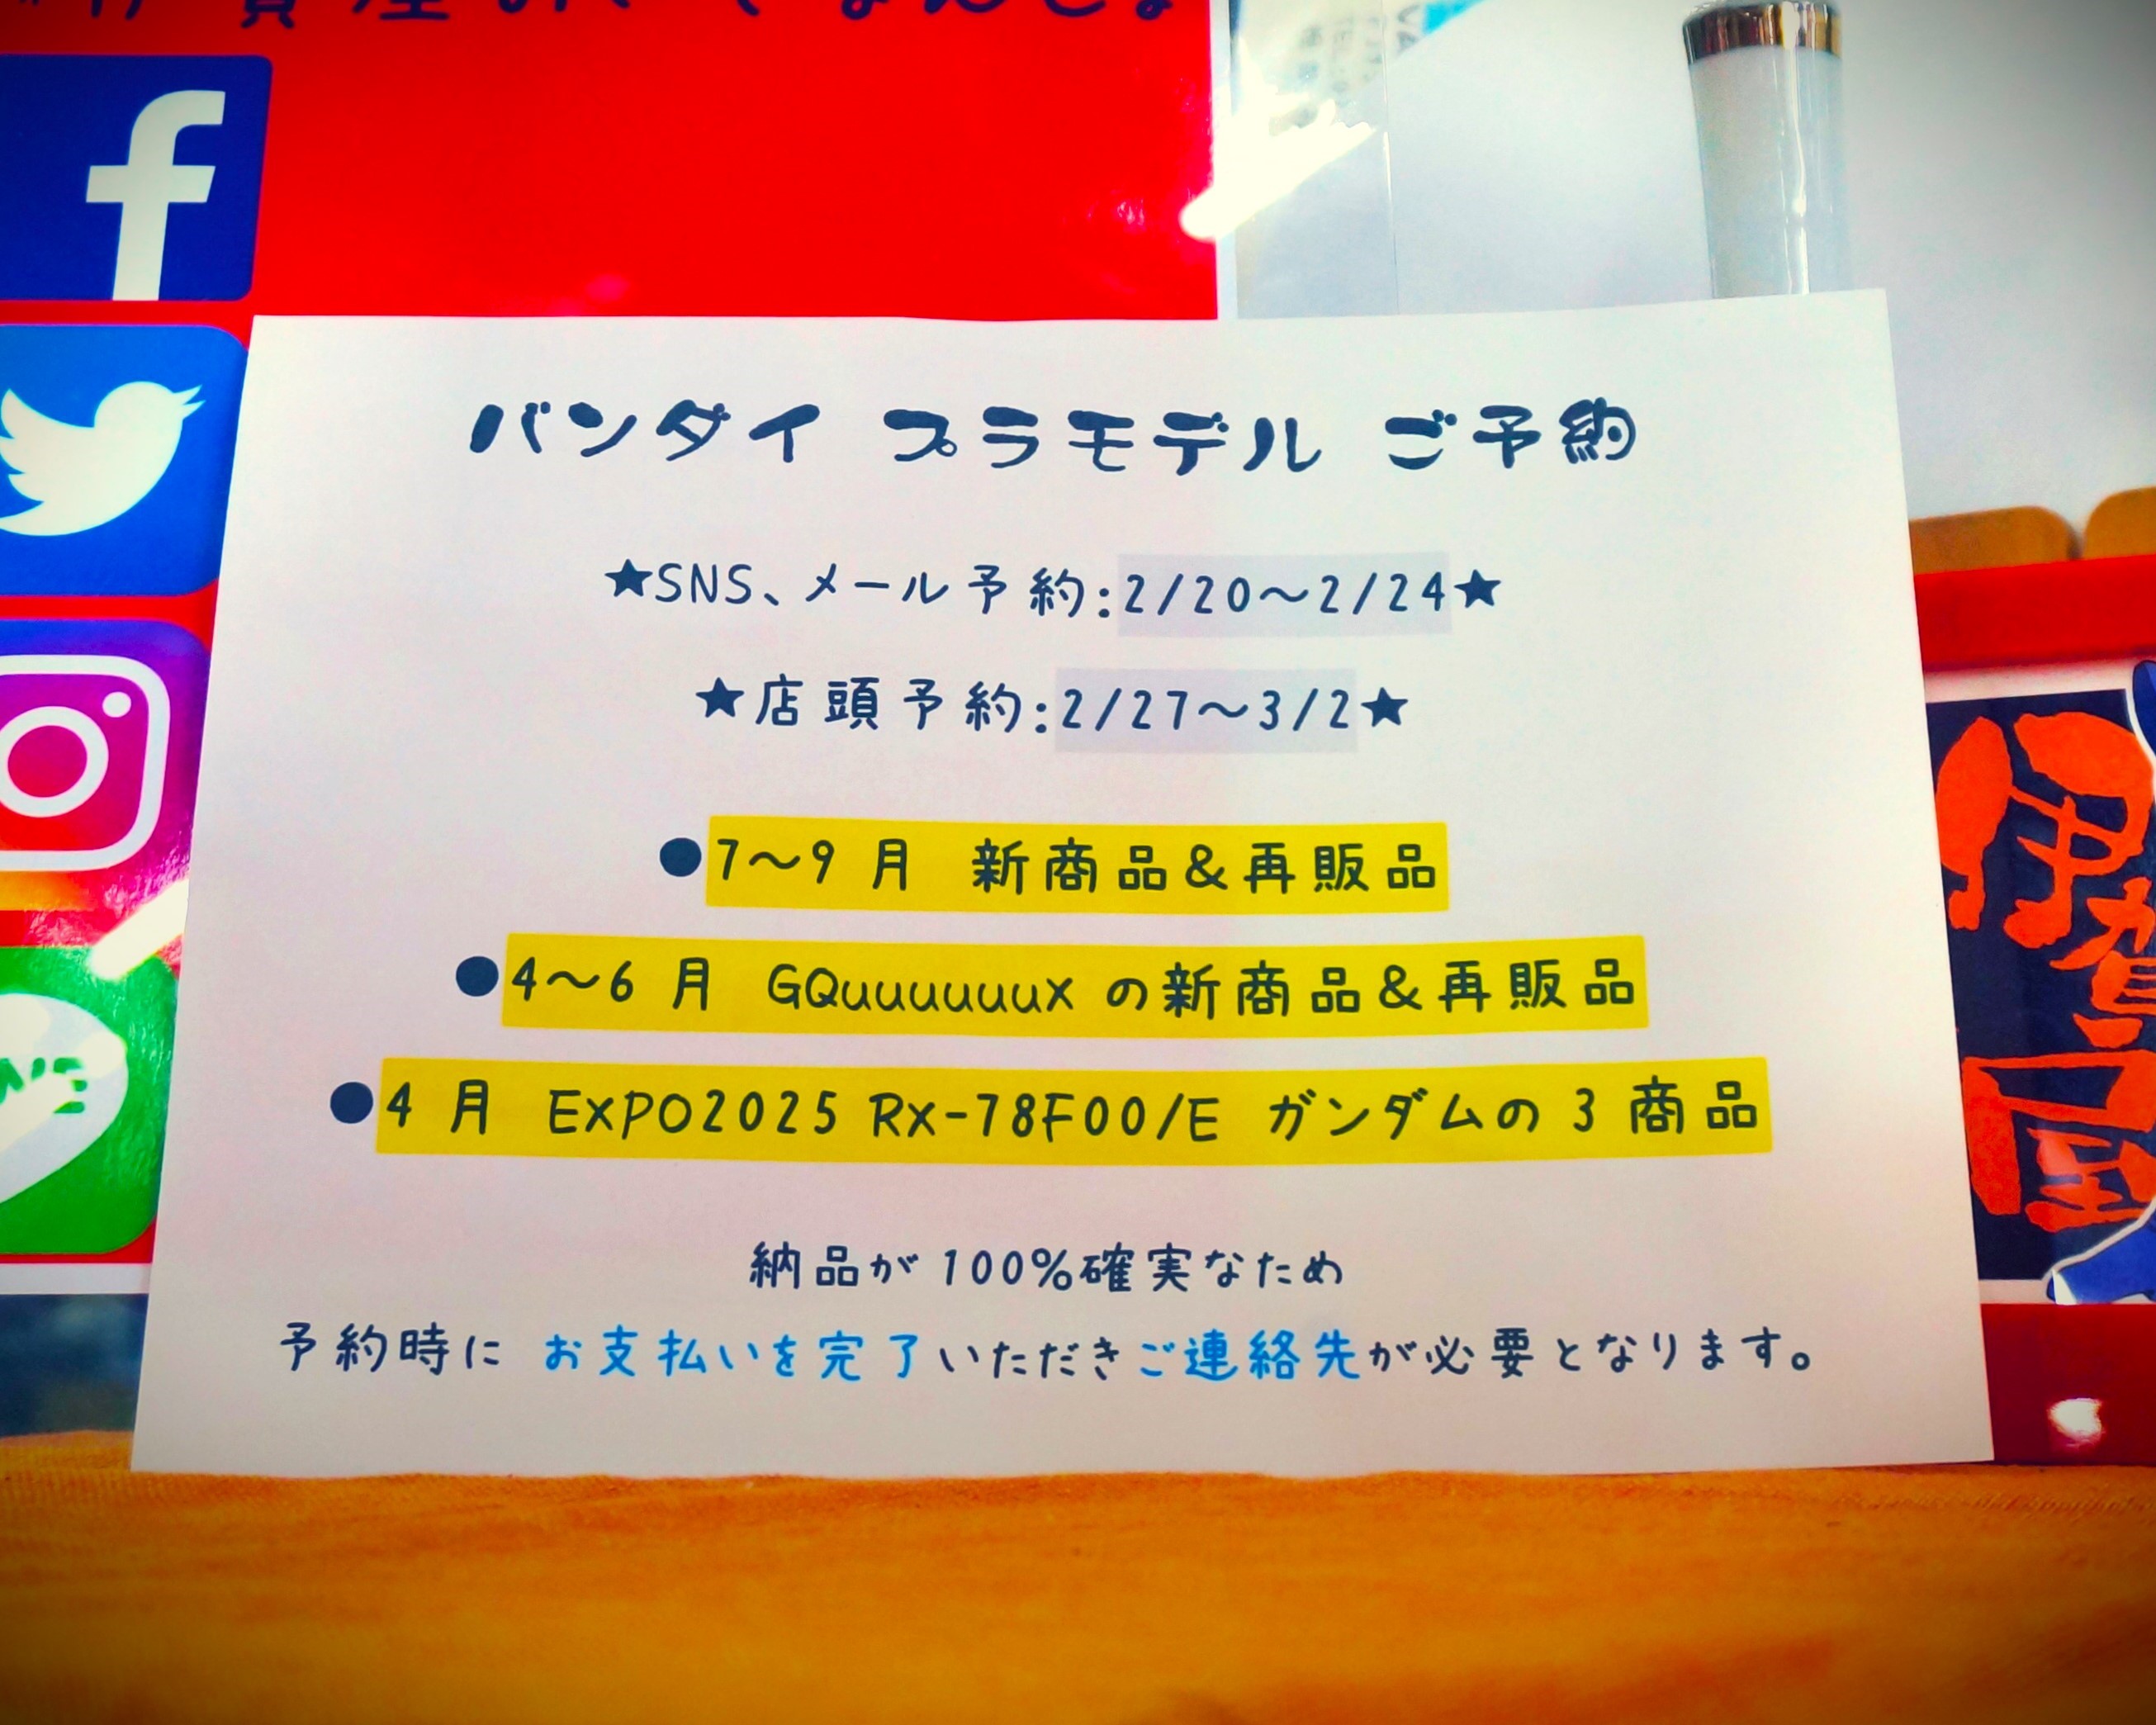 バンダイ プラモデル ご予約
★SNS、メール予約:2/20～2/24★
★店頭予約:2/27～3/2★
●7～9 月 新商品&再販品
●4～6 月 GQuuuuuuX の新商品&再販品
●4 月 EXPO2025 RX-78F00/E ガンダムの 3 商品
納品が 100%確実なため
予約時に お支払いを完了いただきご連絡先が必要となります。
伊賀屋